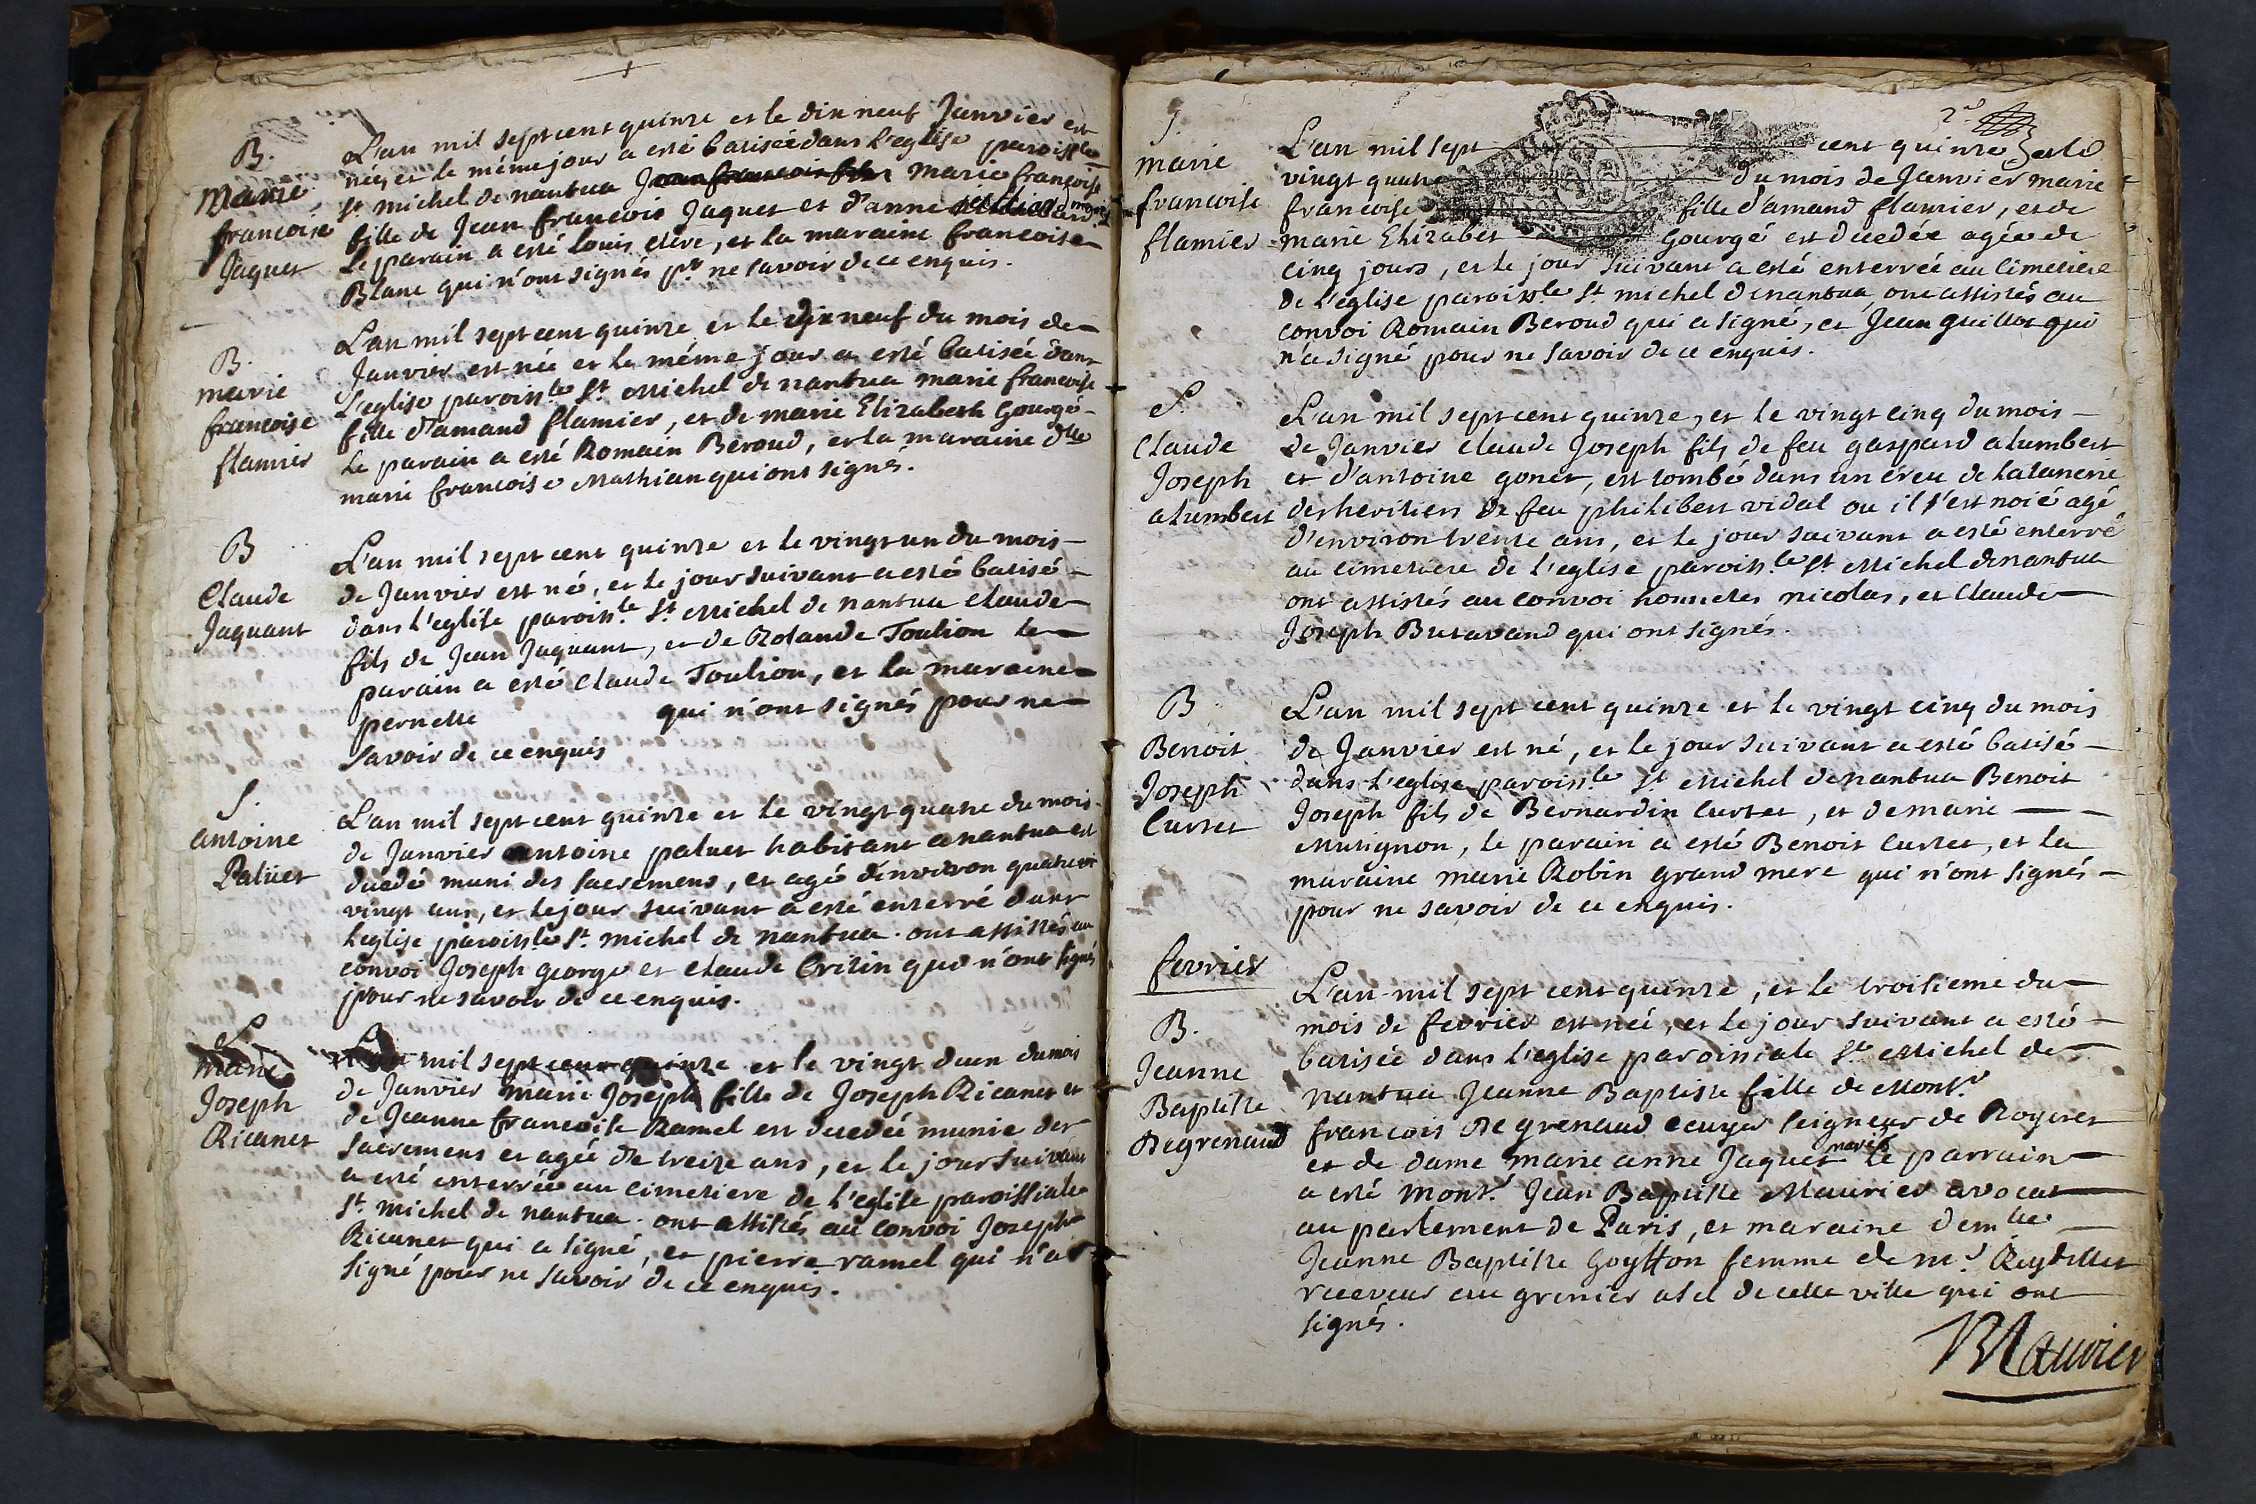 B.
Marie
francoise
Jaquet
L'an mil sept cent quinze et le dix neuf Janvier est
neë, et le même jour a esté batisée dans l'eglise paroissle
St michel de nantua Jean francois fils marie françoise
fille de Jean francois Jaquet et d'anne
Le parain a esté Louis elere, et la maraine francoise
Blanc qui n'ont signés pr ne savoir de ce enquis.
B.
marie
francoise
flamier
L'an mil sept cent quinze et le dix neuf du mois de
Janvier est née et le méme jour a esté batisée dans
L'eglise paroissle St Michel de nantua marie francoise
fille d'amand flamier, et de marie Elizabeth Gourgé
Le parain a esté Romain Beroud, et la maraine dlle
marie francoise Mathian qui ont signés.
B
Claude
Jaquant
L'an mil sept cent quinze et le vingt un du mois
de Janvier est né, et le jour suivant a esté batisé
dans l'eglise paroissle St Michel de nantua Claude
fils de Jean Jaquant, et de Rolande Toulion le
parain a esté Claude Toulion, et la maraine
pernette qui n'ont signés pour ne
savoir de ce enquis
S.
antoine
Paluet
L'an mil sept cent quinze et le vingt quatre du mois
de Janvier antoine paluet habitant a nantua est
decedé muni des sacremens, et agé d'environ quatre
vingt ans, et le jour suivant a esté enterré dans
l'eglise paroissle St. michel de nantua. ont assistés au
convoi Joseph george et claude Critin qui n'ont signés
pour ne savoir de ce enquis.
S
Marie
Joseph
Ricanet
L'an mil sept cent quinze et le vingt deux du mois
de Janvier Marie Joseph fille de Joseph Ricanet et
de Jeanne francoise Ramel est decedée munie des
sacremens et agée de treize ans, et le jour suivant
a esté enterrée au cimetiere de l'eglise paroissiale
St. michel de nantua. ont assistés au convoi Joseph
Ricanet qui a signé, et pierre ramel qui n'a
signé pour ne savoir de ce enquis.
2d
S.
marie
francoise
flamier
L'an mil sept cent quinze et le
vingt quatre du mois de Janvier marie
francoise fille d'amand flamier, et de
marie Elizabet Gourgé est decedée agée de
cinq jours, et le jour suivant a esté enterrée au cimetiere
de l'eglise paroissle St michel de nantua, ont assistés au
convoi Romain Beroud qui a signé, et Jean guillot qui
n'a signé pour ne savoir de ce enquis.
S.
Claude
Joseph
alumbert
L'an mil sept cent quinze, et le vingt cinq du mois
de Janvier claude Joseph fils de feu gaspard alumbert
et d'antoine gonet, est tombé dans un creu de la tanerie
des heritiers de feu philibert vidal ou il s'est noié agé
d'environ trente ans, et le jour suivant a esté enterré
au cimetiere de l'eglise paroissle St Michel de nantua
ont assistés au convoi honnetes nicolas, et Claude
Joseph Butavand qui ont signés.
B.
Benoit
Joseph
Curtet
L'an mil sept cent quinze et le vingt cinq du mois
de Janvier est né, et le jour suivant a esté batisé
dans l'eglise paroissle St Michel de nantua Benoit
Joseph fils de Bernardin Curtet, et de marie
Mutignon, le parain a esté Benoit Curtet, et la
maraine marie Robin grand mere qui n'ont signés
pour ne savoir de ce enquis.
fevrier
B.
Jeanne
Baptiste
Degrenaud
L'an mil sept cent quinze, et le troisieme du
mois de fevrier est née, et le jour suivant a esté
batisée dans l'eglise paroissiale St Michel de
nantua Jeanne Baptiste fille de Monsr
francois De grenaud ecuyer seigneur de Rogeret
et de dame marie anne Jaquet mariés le parrain
a esté Monsr. Jean Baptiste Mauvier avocat
au parlement de Paris, et maraine demlle
Jeanne Baptiste Goyffon femme de mr. Reydellet
receveur au grenier a sel de cette ville qui ont
signés.
Mauvier